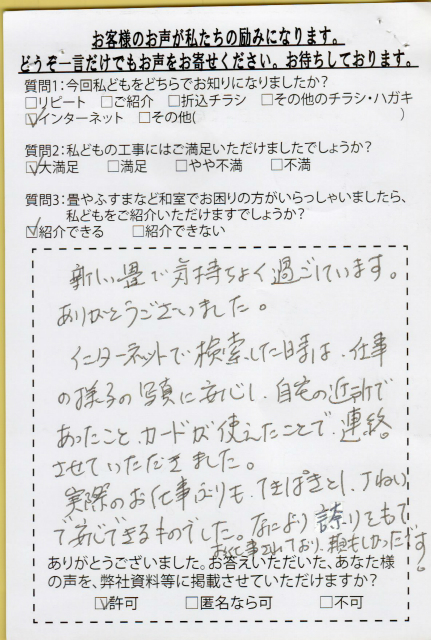 お客様のお声が私たちの励みになります。
どうぞ一言だけでもお声をお寄せください。お待ちしております。
質問1：今回私どもをどちらでお知りになりましたか？
□リピート □ご紹介 □折込チラシ □その他のチラシ・ハガキ
☑インターネット □その他( )
質問2：私どもの工事にはご満足いただけましたでしょうか？
☑大満足 □満足 □やや不満 □不満
質問3：畳やふすまなど和室でお困りの方がいらっしゃいましたら、
私どもをご紹介いただけますでしょうか？
☑紹介できる □紹介できない
新しい畳で気持ちよく過ごしています。
ありがとうございました。
インターネットで検索した時は、仕事
の様子の写真に安心し、自宅の近所で
あったこと、カードが使えたことで、連絡
させていただきました。
実際のお仕事ぶりも、てきぱきとし、ていねい
で安心できるものでした。なにより誇りをもって
お仕事されており、頼もしかったです。
ありがとうございました。お答えいただいた、あなた様
の声を、弊社資料等に掲載させていただけますか？
☑許可 □匿名なら可 □不可